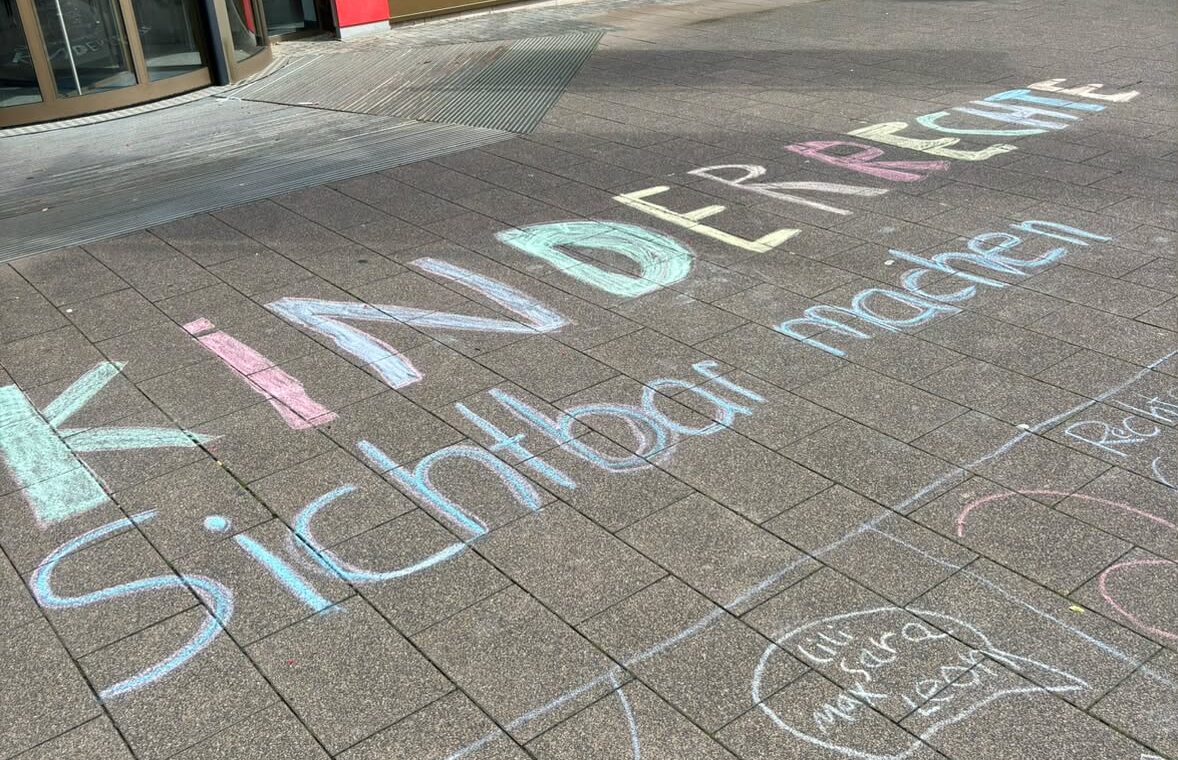 KINDERRECHTE
Sichtbar machen
Lili
Max Sara
Leon